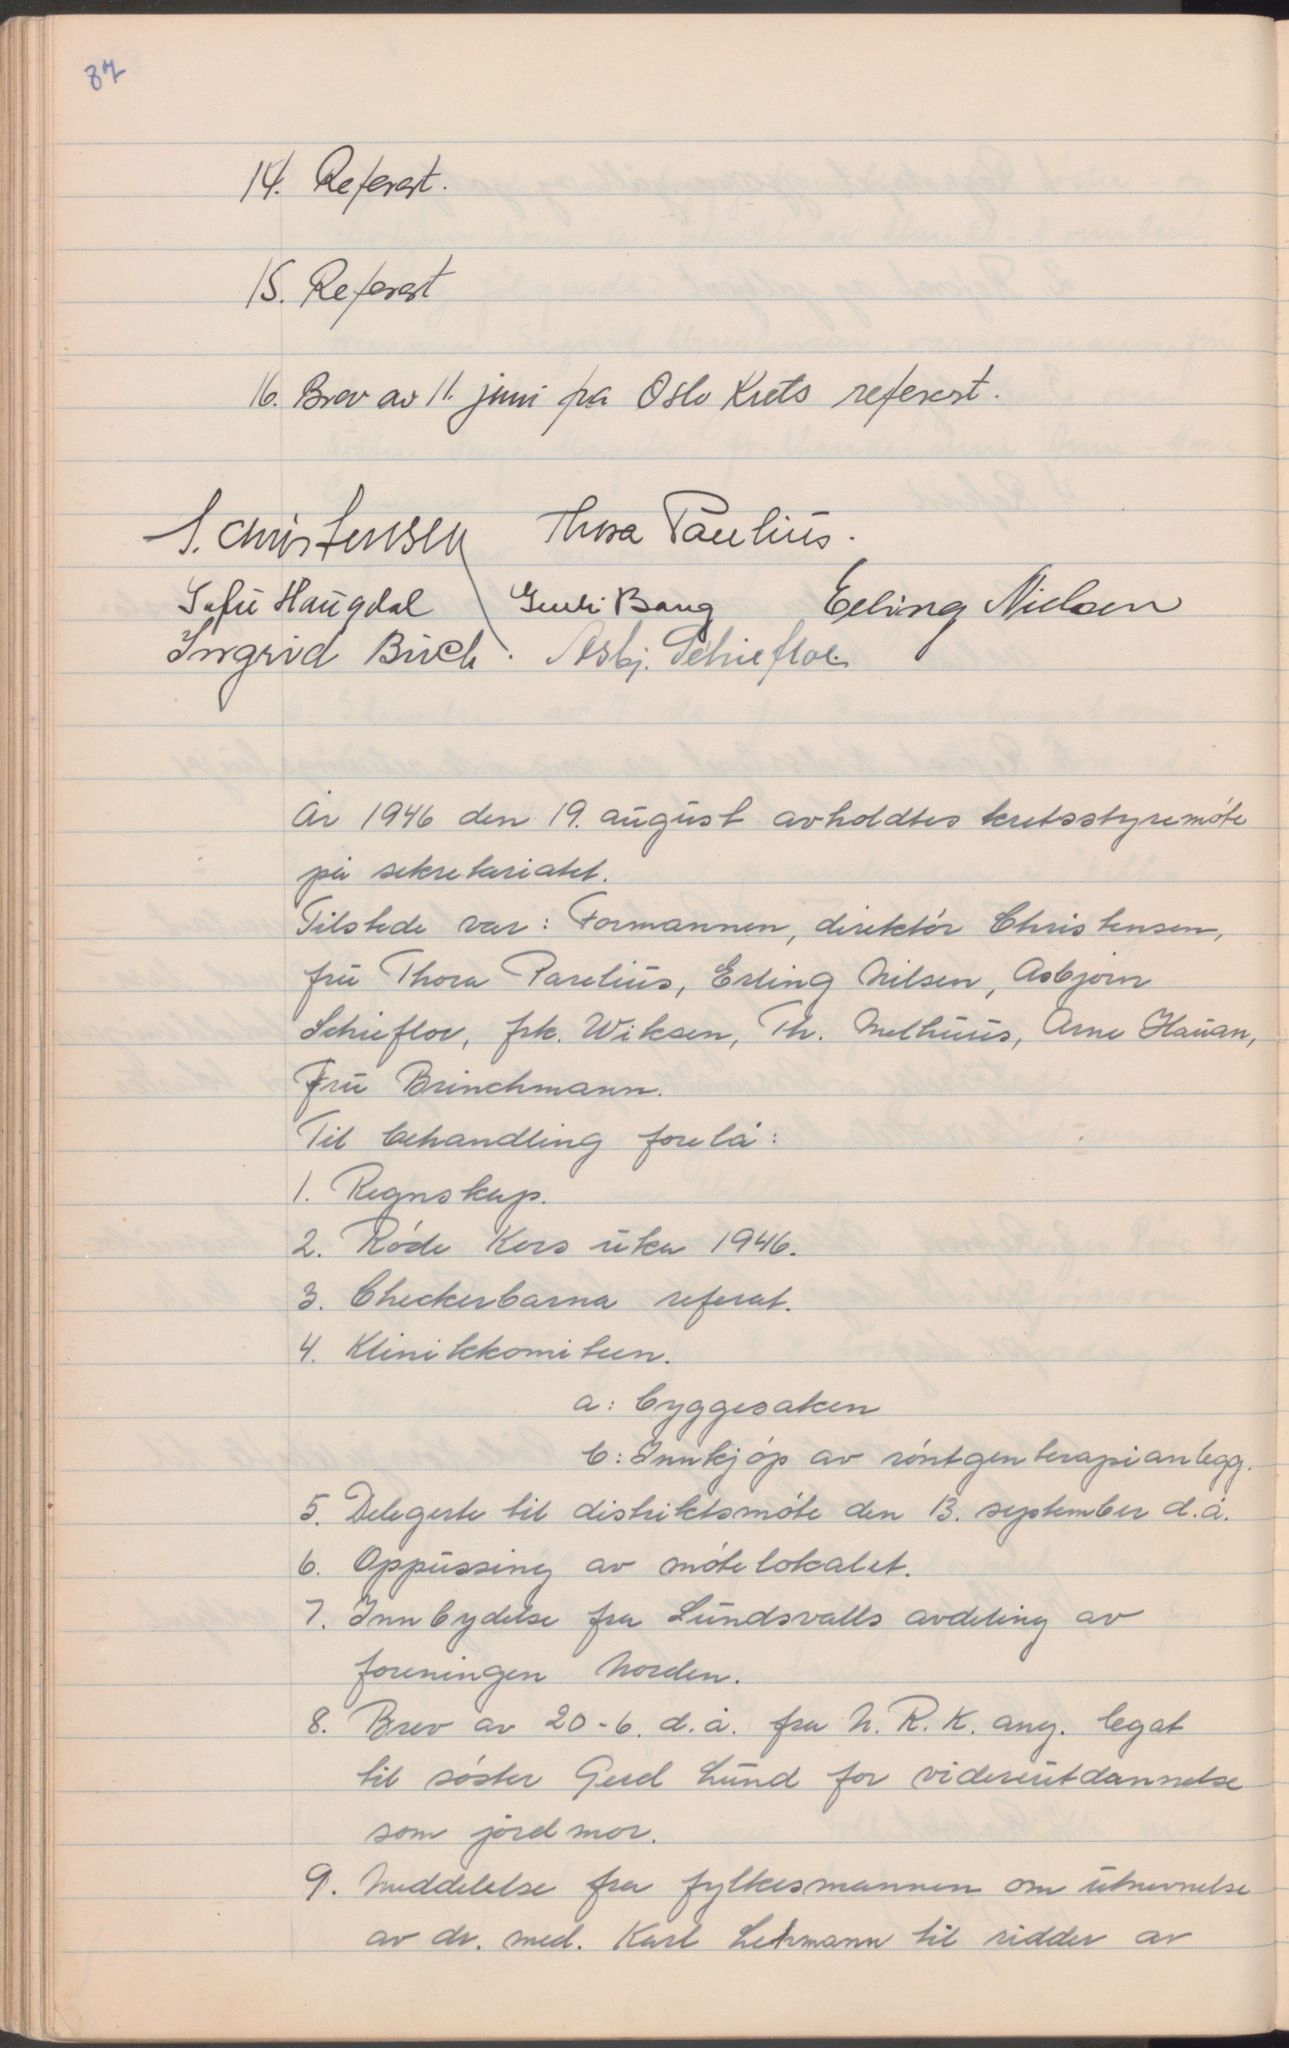 87
14. Referert.
15. Referert
16. Brev av 11. juni fra Oslo Krets referert.
S. Christensen Thora Parelius.
Haugdal Bang Erling Nielsen
Ingrid Buch. Asbj. Schiefloe.
År 1946 den 19. august avholdtes kretsstyremöte
på sekretariatet.
Tilstede var: Formannen, direktör Christensen,
fru Thora Parelius, Erling Nilsen, Asbjørn
Schiefloe, frk. Wiksen, Th. Melhuus, Arne Hauan,
Fru Brinchmann.
Til behandling forelå:
1. Regnskap.
2. Röde Kors uka 1946.
3. Checkerbarna referat.
4. Klinikkomiteen.
a: byggesaken
b: Innkjöp av röntgenterapianlegg.
5. Delegerte til distriktsmöte den 13. september d.å.
6. Oppussing av mötelokalet.
7. Innbydelse fra Sundsvalls avdeling av
foreningen Norden.
8. Brev av 20-6. d.å. fra N. R. K. ang. legat
til söster Gerd Lund for videreutdannelse
som jordmor.
9. Meddelelse fra fylkesmannen om utnevnelse
av dr. med. Karl Lehmann til ridder av